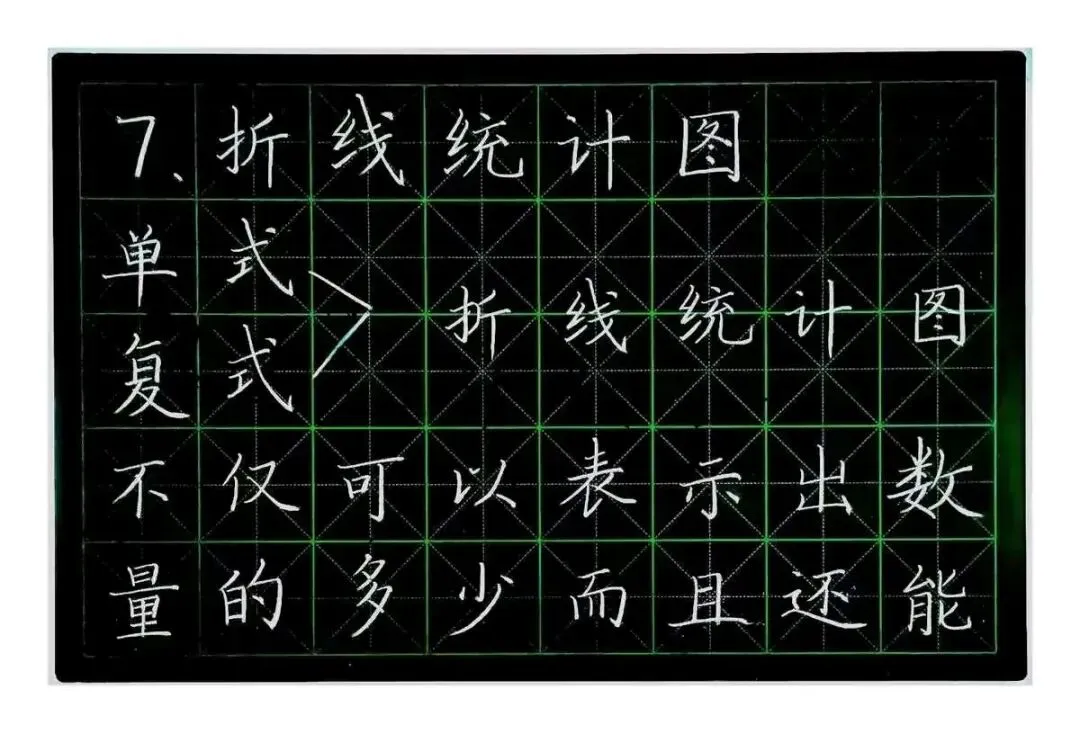 7、折线统计图
单式
复式
折线统计图
不仅可以表示出数
量的多少而且还能